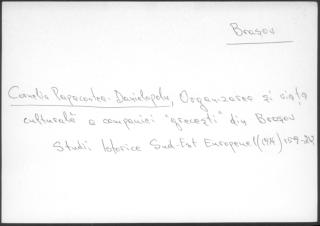 Brașov
Cornelia Papacostea-Danielopolu, Organizarea și viața
culturală a companiei "grecești" din Brașov
Studii Istorice Sud-Est Europene I (1974) 159-